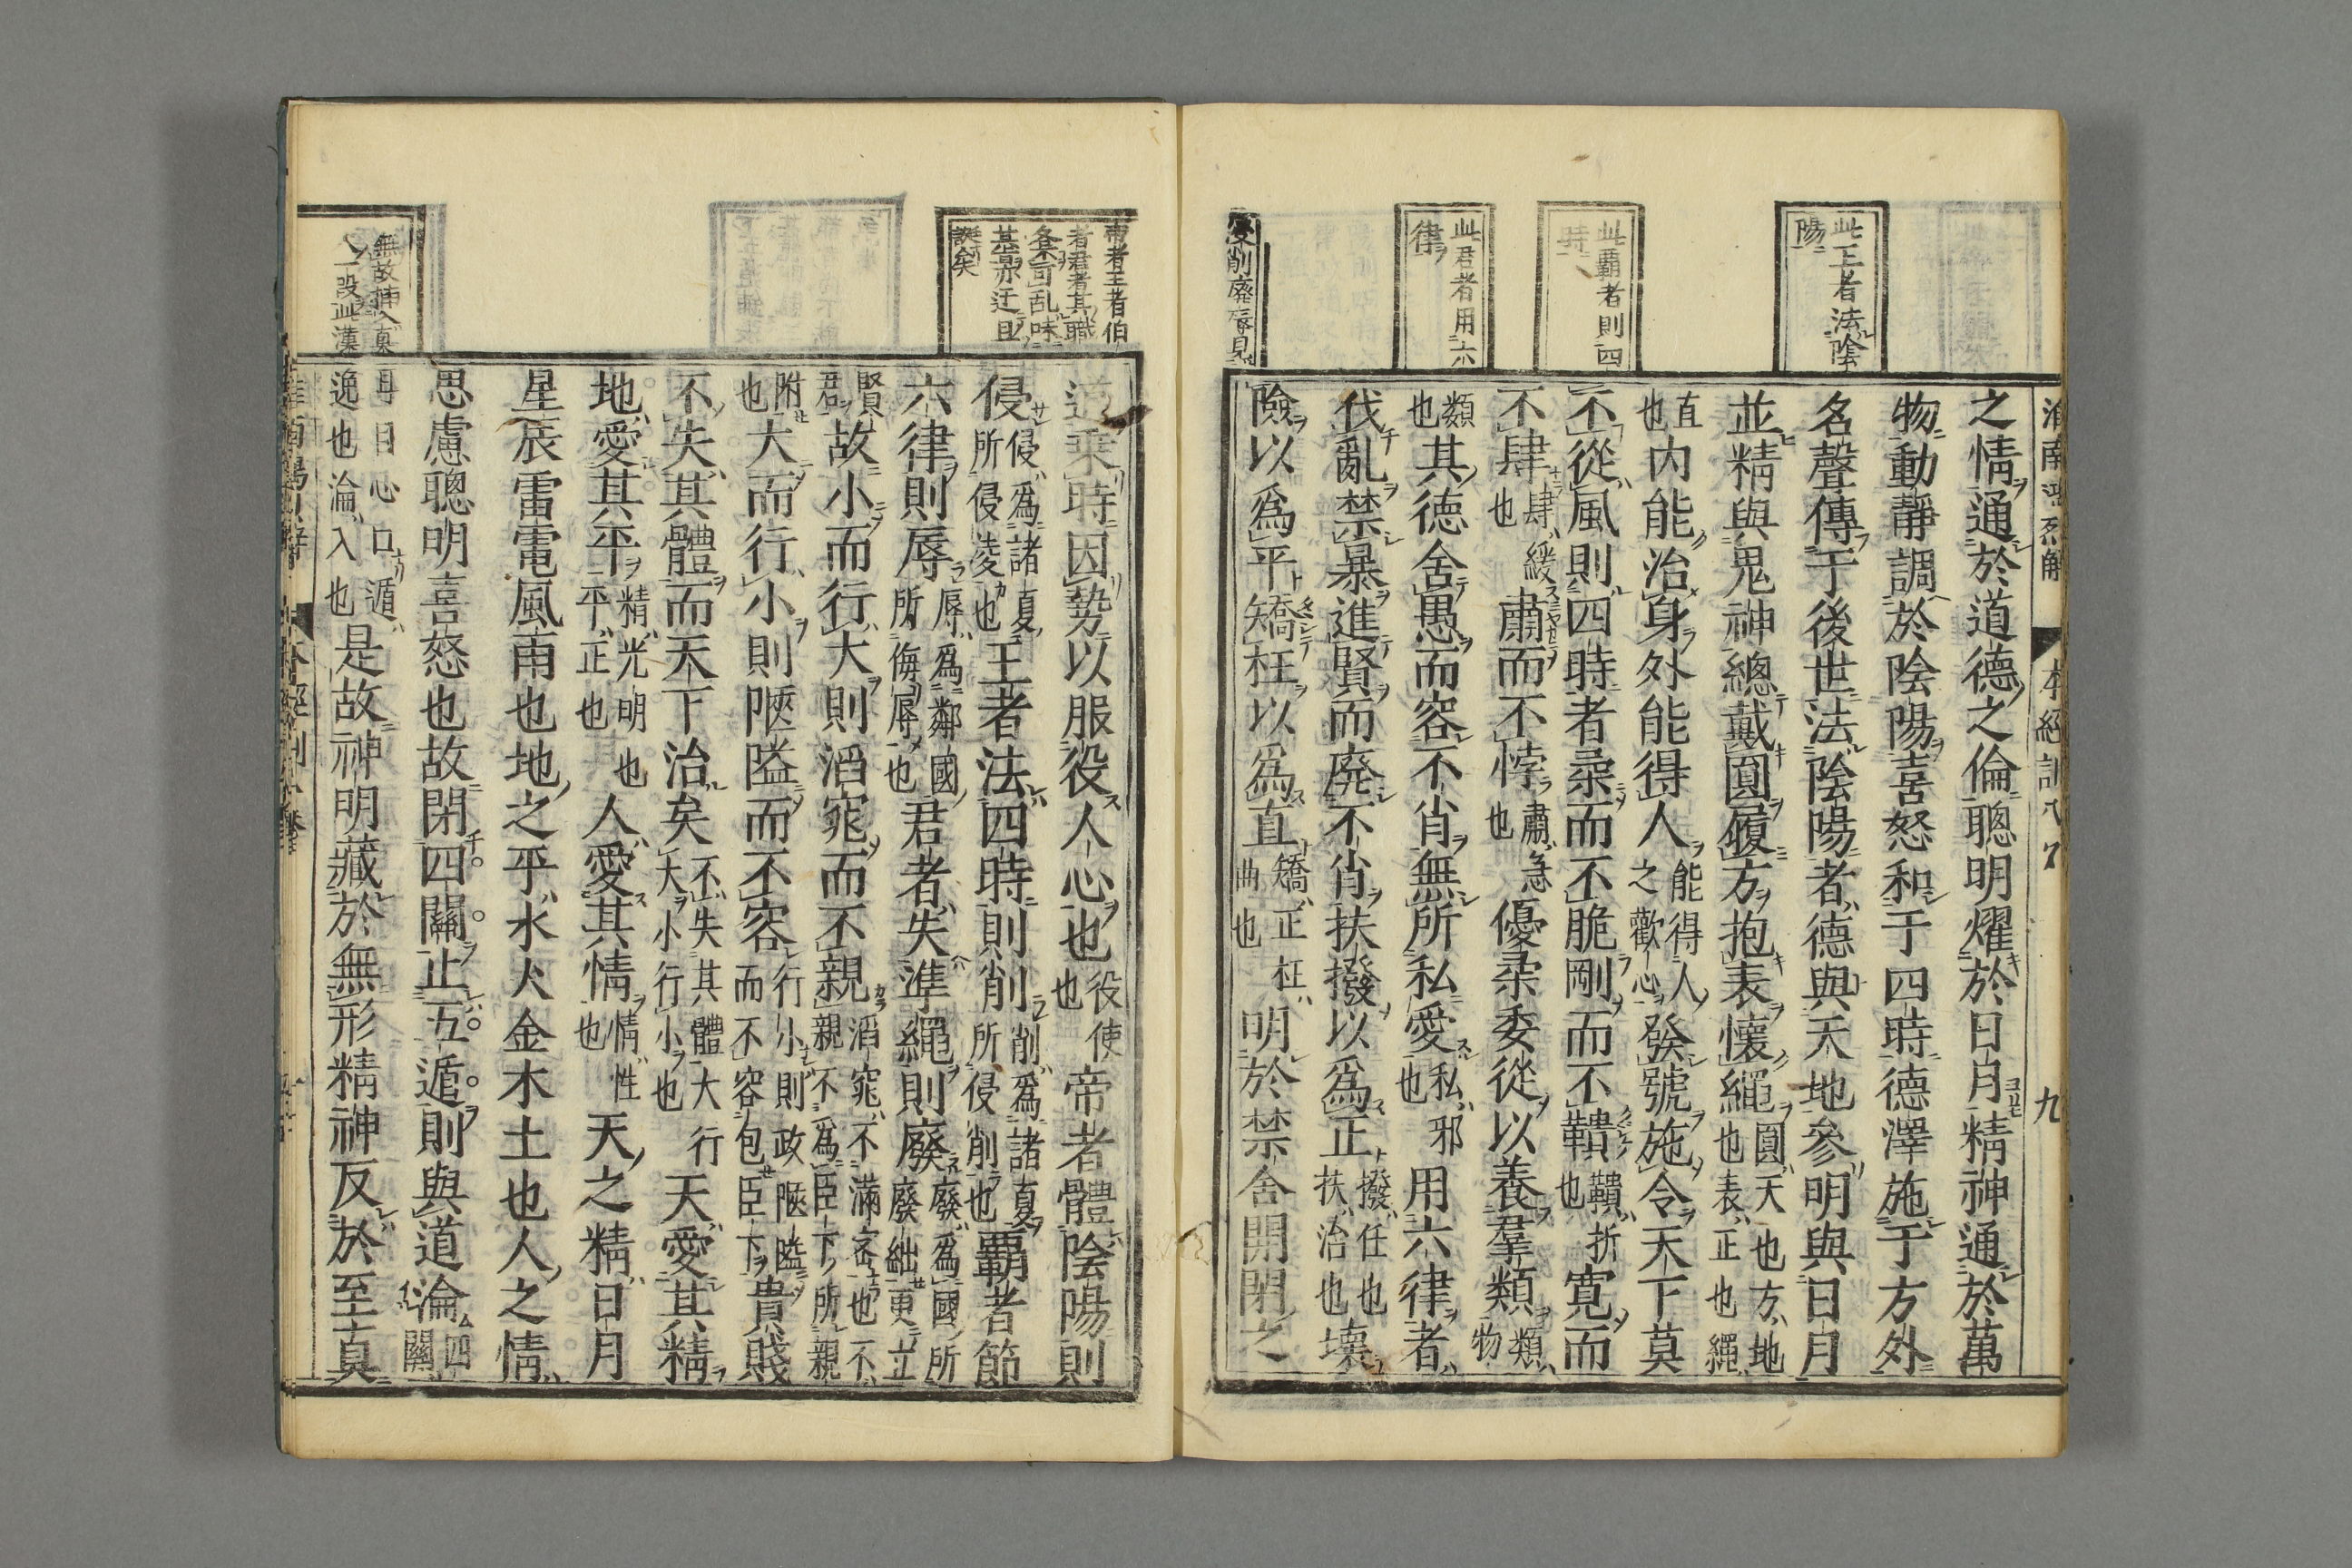 淮南鴻烈解
本經訓
九
此王者法陰
陽
此覇者則四
時
此君者用六
律
侵削廢辱見
之情通於道德之倫聰明燿於日月精神通於萬
物動靜調於陰陽喜怒和于四時德澤施于方外
名聲傳于後世法陰陽者德與天地參明與日月
並精與鬼神總戴圓履方抱表懷繩圓天也方地也表正也繩
直也内能治身外能得人能得人之歡心發號施令天下莫
不從風則四時者柔而不脆剛而不鞼鞼折也寬而
不肆肆緩也肅而不悖肅急也優柔委從以養羣類類物
類也其德舍愚而容不肖無所私愛私邪也用六律者
伐亂禁暴進賢而廢不肖扶撥以爲正撥任也扶治也壊
險以爲平矯枉以爲直矯正枉曲也明於禁舍開閉之
帝者王者伯
者君者其職
各未可乱味
甚亦迂且
誕矣
無故挿入真
人一段此漢
道乗時因勢以服役人心也役使也帝者體陰陽則
侵侵爲諸夏所侵凌也王者法四時則削削爲諸夏所侵削也覇者節
六律則辱辱爲鄰國所侮辱也君者失準繩則廢廢爲國所廢絀更立
賢君故小而行大則滔窕而不親滔窕不滿密也不爲臣下所親
附也大而行小則陿隘而不容行小則政陿隘而不容包臣下貴賤
不失其體而天下治矣不失其體大行大小行小也天愛其精
地愛其平精光明也平正也人愛其情情性也天之精日月
星辰雷電風雨也地之平水火金木土也人之情
思慮聰明喜怒也故閉四關止五遁則與道淪四關
耳目心口遁逸也淪入也是故神明藏於無形精神反於至真